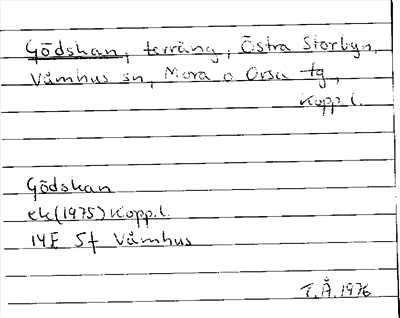 Gödskan, terräng, Östra Storbyn,
Våmhus sn, Mora o Orsa tg,
Kopp. l.
Gödskan
ek (1975) Kopp. l.
14E 5f Våmhus
T.Å. 1976